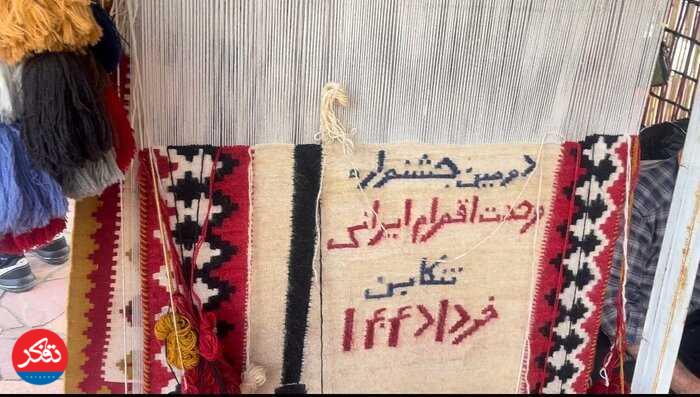 دومین جشنواره
وحدت اقوام ایرانی
تنکابن
خرداد ۱۴۴
تفکر